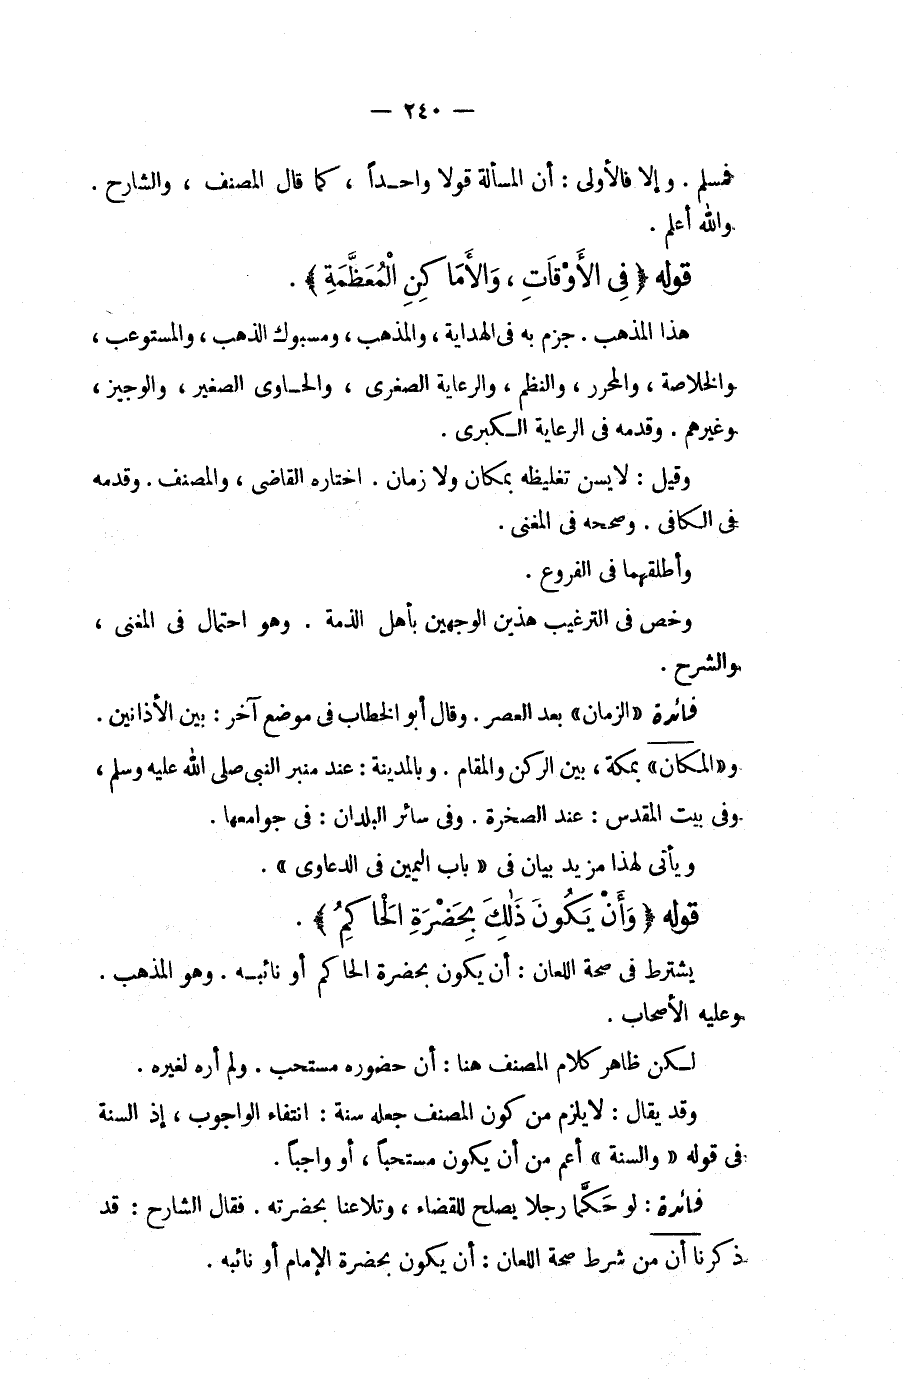 — ٢٤٠ —
فمسلم . وإلا فالأولى : أن المسألة قولا واحـداً ، كما قال المصنف ، والشارح .
والله أعلم .
قوله ﴿ فِى الأَوْقَاتِ ، وَالأَمَاكِنِ الْمُعَظَّمَةِ ﴾ .
هذا المذهب . جزم به فى الهداية ، والمذهب ، ومسبوك الذهب ، والمستوعب ،
والخلاصة ، والمحرر ، والنظم ، والرعاية الصغرى ، والحـاوى الصغير ، والوجيز ،
وغيرهم . وقدمه فى الرعاية الـكبرى .
وقيل : لا يسن تغليظه بمكان ولا زمان . اختاره القاضى ، والمصنف . وقدمه
فى الـكافى . وصححه فى المغنى .
وأطلقهما فى الفروع .
وخص فى الترغيب هذين الوجهين بأهل الذمة . وهو احتمال فى المغنى ،
والشرح .
فائدة «الزمان» بعد العصر . وقال أبو الخطاب فى موضع آخر : بين الأذانين .
و«المكان» بمكة ، بين الركن والمقام . وبالمدينة : عند منبر النبى صلى الله عليه وسلم ،
وفى بيت المقدس : عند الصخرة . وفى سائر البلدان : فى جوامعها .
ويأتى لهذا مزيد بيان فى « باب اليمين فى الدعاوى » .
قوله ﴿ وَأَنْ يَكُونَ ذَلِكَ بِحَضْرَةِ الْحَاكِمِ ﴾ .
يشترط فى صحة اللعان : أن يكون بحضرة الحاكم أو نائبـه . وهو المذهب .
وعليه الأصحاب .
لـكن ظاهر كلام المصنف هنا : أن حضوره مستحب . ولم أره لغيره .
وقد يقال : لا يلزم من كون المصنف جعله سنة : انتفاء الواجوب ، إذ السنة
فى قوله « والسنة » أعم من أن يكون مستحباً ، أو واجباً .
فائدة : لو حَكَّما رجلا يصلح للقضاء ، وتلاعنا بحضرته . فقال الشارح : قد
ذكرنا أن من شرط صحة اللعان : أن يكون بحضرة الإمام أو نائبه .